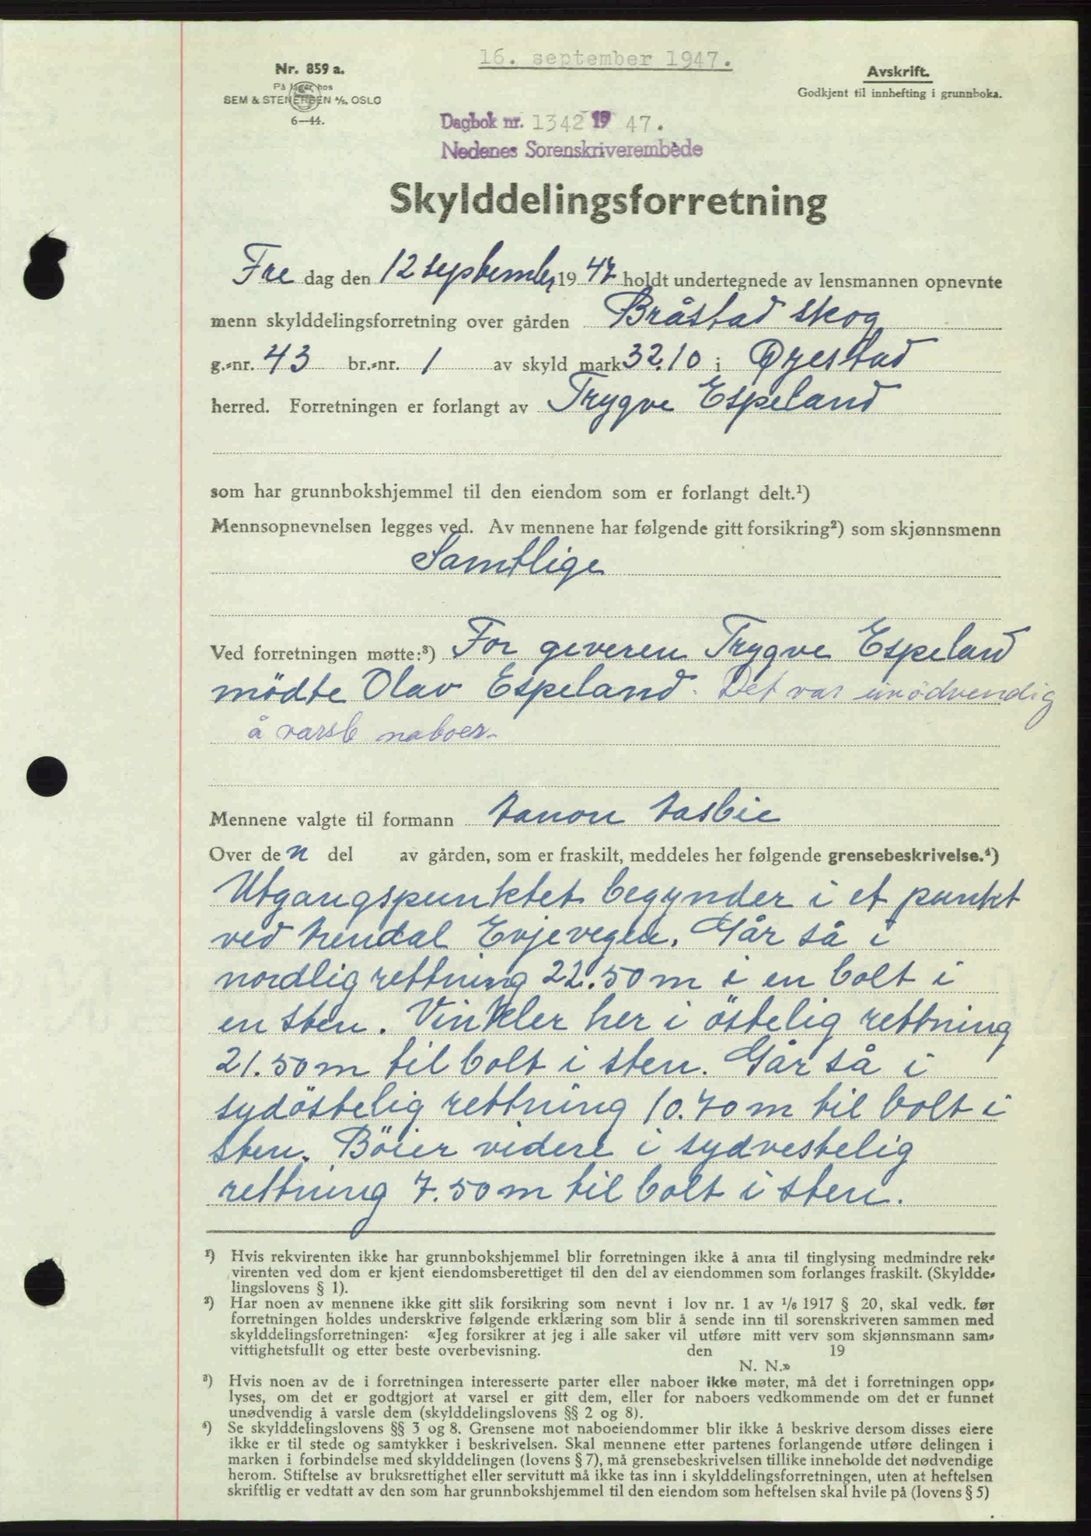 16. september 1947.
Nr. 859 a.
På lager hos
SEM & STENERSEN A/S, OSLO
6—44.
Avskrift.
Godkjent til innhefting i grunnboka.
Dagbok nr. 1342 19 47.
Nedenes Sorenskriverembede
Skylddelingsforretning
Fre dag den 12 september 19 47 holdt undertegnede av lensmannen opnevnte
menn skylddelingsforretning over gården Bråstad skog
g.-nr. 43 br.-nr. 1 av skyld mark 32.10 i Øyestad
herred. Forretningen er forlangt av Trygve Espeland
som har grunnbokshjemmel til den eiendom som er forlangt delt.¹)
Mennsopnevnelsen legges ved. Av mennene har følgende gitt forsikring²) som skjønnsmenn
Samtlige
Ved forretningen møtte:³) For geveren Trygve Espeland
mödte Olav Espeland. Det var unödvendig
å varsle naboer.
Mennene valgte til formann
Over de n del av gården, som er fraskilt, meddeles her følgende grensebeskrivelse.⁴)
Utgangspunktet begynder i et punkt
ved Arendal Evjevegen. Går så i
nordlig rettning 22.50 m i en bolt i
en sten. Vinkler her i östelig rettning
21.50 m til bolt i sten. Går så i
sydöstelig rettning 10.70 m til bolt i
sten. Böier videre i sydvestelig
rettning 7.50 m til bolt i sten.
¹) Hvis rekvirenten ikke har grunnbokshjemmel blir forretningen ikke å anta til tinglysing medmindre rek-
virenten ved dom er kjent eiendomsberettiget til den del av eiendommen som forlanges fraskilt. (Skyldde-
lingslovens § 1).
²) Har noen av mennene ikke gitt slik forsikring som nevnt i lov nr. 1 av ¹/₆ 1917 § 20, skal vedk. før
forretningen holdes underskrive følgende erklæring som blir å sende inn til sorenskriveren sammen med
skylddelingsforretningen: «Jeg forsikrer at jeg i alle saker vil utføre mitt verv som skjønnsmann sam-
vittighetsfullt og etter beste overbevisning. den 19
N. N.»
³) Hvis noen av de i forretningen interesserte parter eller naboer ikke møter, må det i forretningen opp-
lyses, om det er godtgjort at varsel er gitt dem, eller for naboers vedkommende om det er funnet
unødvendig å varsle dem (skylddelingslovens §§ 2 og 8).
⁴) Se skylddelingslovens §§ 3 og 8. Grensene mot naboeiendommer blir ikke å beskrive dersom disses eiere
ikke er til stede og samtykker i beskrivelsen. Skal mennene etter partenes forlangende utføre delingen i
marken i forbindelse med skylddelingen (lovens § 7), må grensebeskrivelsen tillike inneholde det nødvendige
herom. Stiftelse av bruksrettighet eller servitutt må ikke tas inn i skylddelingsforretningen, uten at heftelsen
skriftlig er vedtatt av den som har grunnbokshjemmel til den eiendom som heftelsen skal hvile på (lovens § 5)